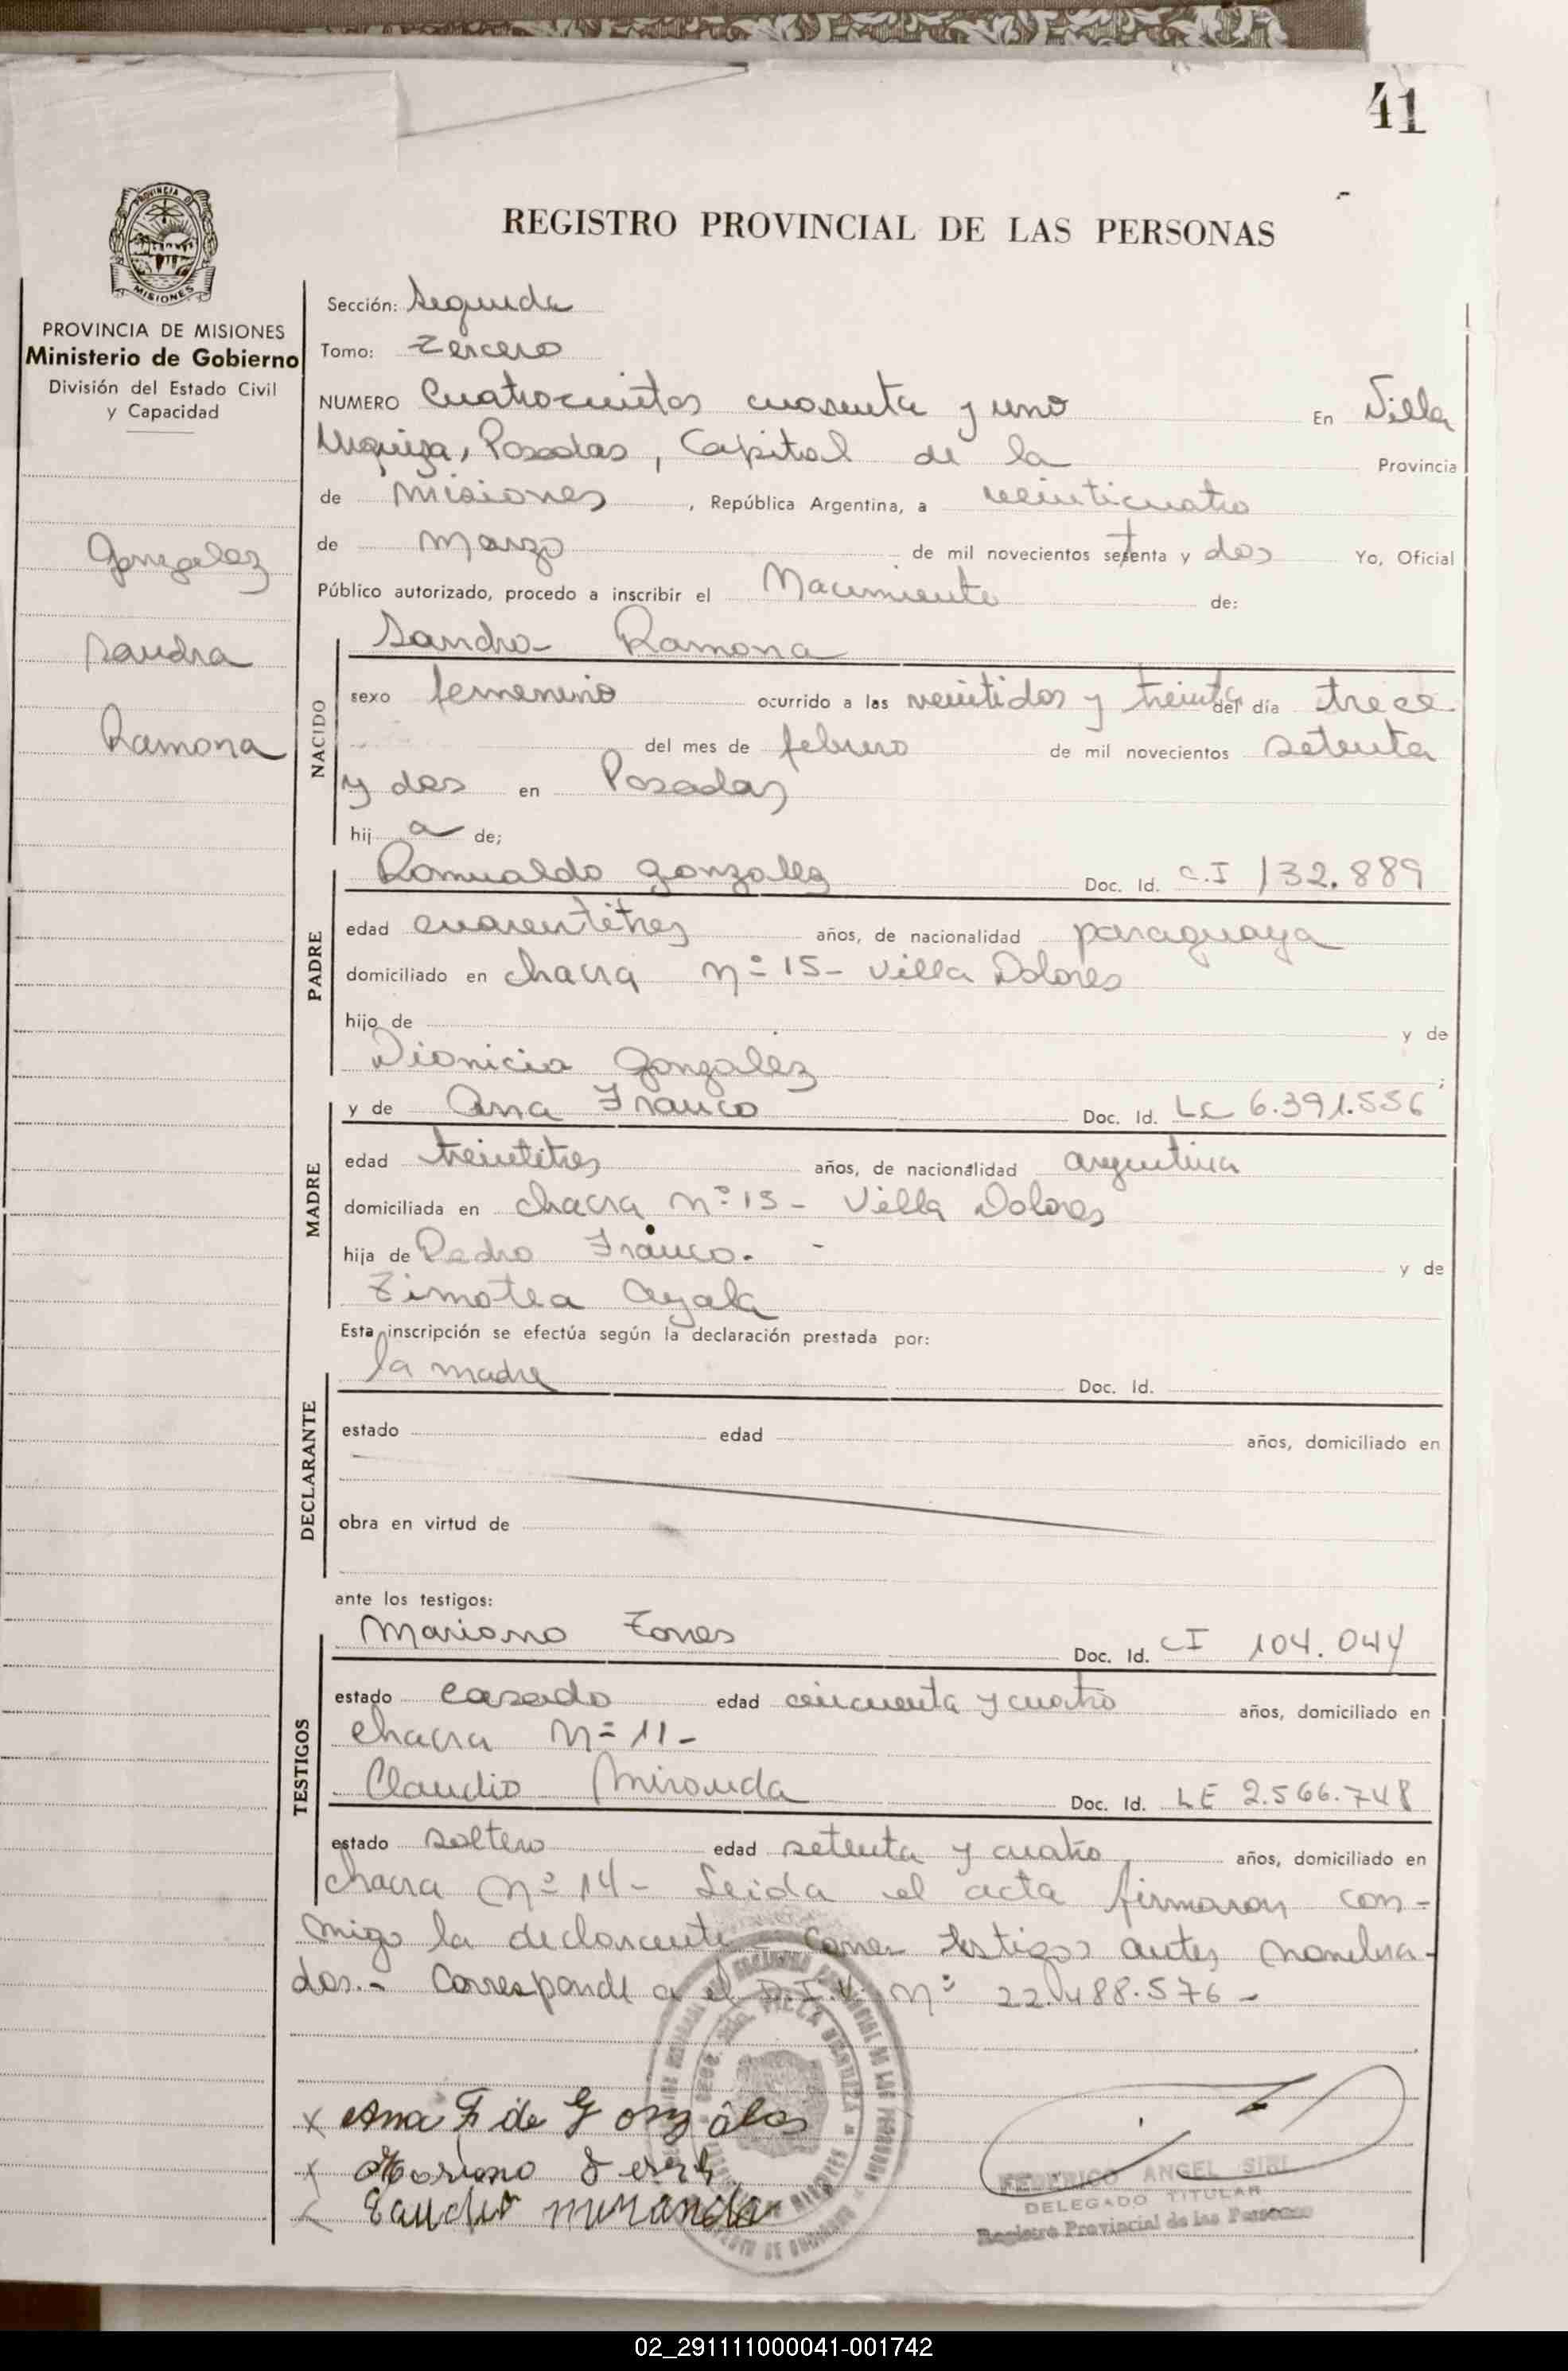 41
PROVINCIA DE
MISIONES
REGISTRO PROVINCIAL DE LAS PERSONAS
PROVINCIA DE MISIONES
Ministerio de Gobierno
División del Estado Civil
y Capacidad
Gonzalez
Sandra
Ramona
Sección: Segunda
Tomo: Tercero
NUMERO Cuatrocientos cuarenta y uno En Villa
Urquiza, Posadas, Capital de la Provincia
de Misiones, República Argentina, a veinticuatro
de Marzo de mil novecientos setenta y dos Yo, Oficial
Público autorizado, procedo a inscribir el Nacimiento de:
NACIDO
Sandra Ramona
sexo femenino ocurrido a las veintidos y treinta del día trece
del mes de febrero de mil novecientos setenta
y dos en Posadas
hij a de;
PADRE
Romualdo Gonzalez Doc. Id. C.I 132.889
edad cuarentitres años, de nacionalidad paraguaya
domiciliado en chacra nº 15- Villa Dolores
hijo de y de
Dionicia Gonzalez ;
MADRE
y de Ana Franco Doc. Id. LC 6.391.556
edad treintitres años, de nacionalidad argentina
domiciliada en chacra nº 15- Villa Dolores
hija de Pedro Franco. - y de
Timotea Ayala
Esta inscripción se efectúa según la declaración prestada por:
DECLARANTE
la madre Doc. Id.
estado edad años, domiciliado en
obra en virtud de
ante los testigos:
TESTIGOS
Mariano Torres Doc. Id. CI 104.044
estado casado edad cincuenta y cuatro años, domiciliado en
chacra Nº 11-
Claudio Miranda Doc. Id. LE 2.566.748
estado soltero edad setenta y cuatro años, domiciliado en
chacra nº 14- Leida el acta firmaron con-
migo la declarante testigos antes nombra-
dos.- Corresponde a el D.I.U. nº 22.488.576-
x Ana F de Gonzalez
x Mariano
x Miranda
FEDERICO ANGEL SIRI
DELEGADO TITULAR
Registro Provincial de las Personas
02_291111000041-001742